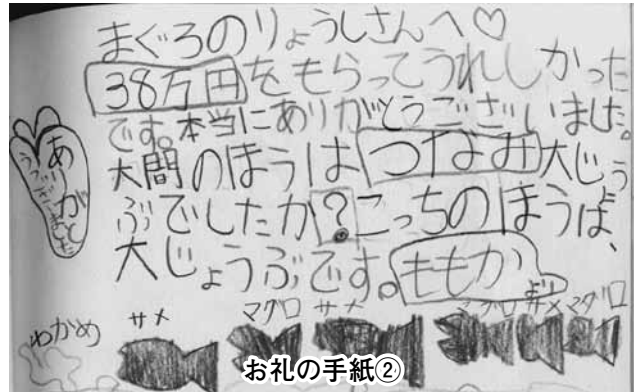 まぐろのりょうしさんへ♡
38万円をもらってうれしかった
です。本当にありがとうございました。
大間のほうはつなみ大じょう
ぶでしたか？こっちのほうは、
大じょうぶです。ももかより
ありがとう
わかめ
サメ
マグロ
サメ
マグロ
サメ
マグロ
お礼の手紙②